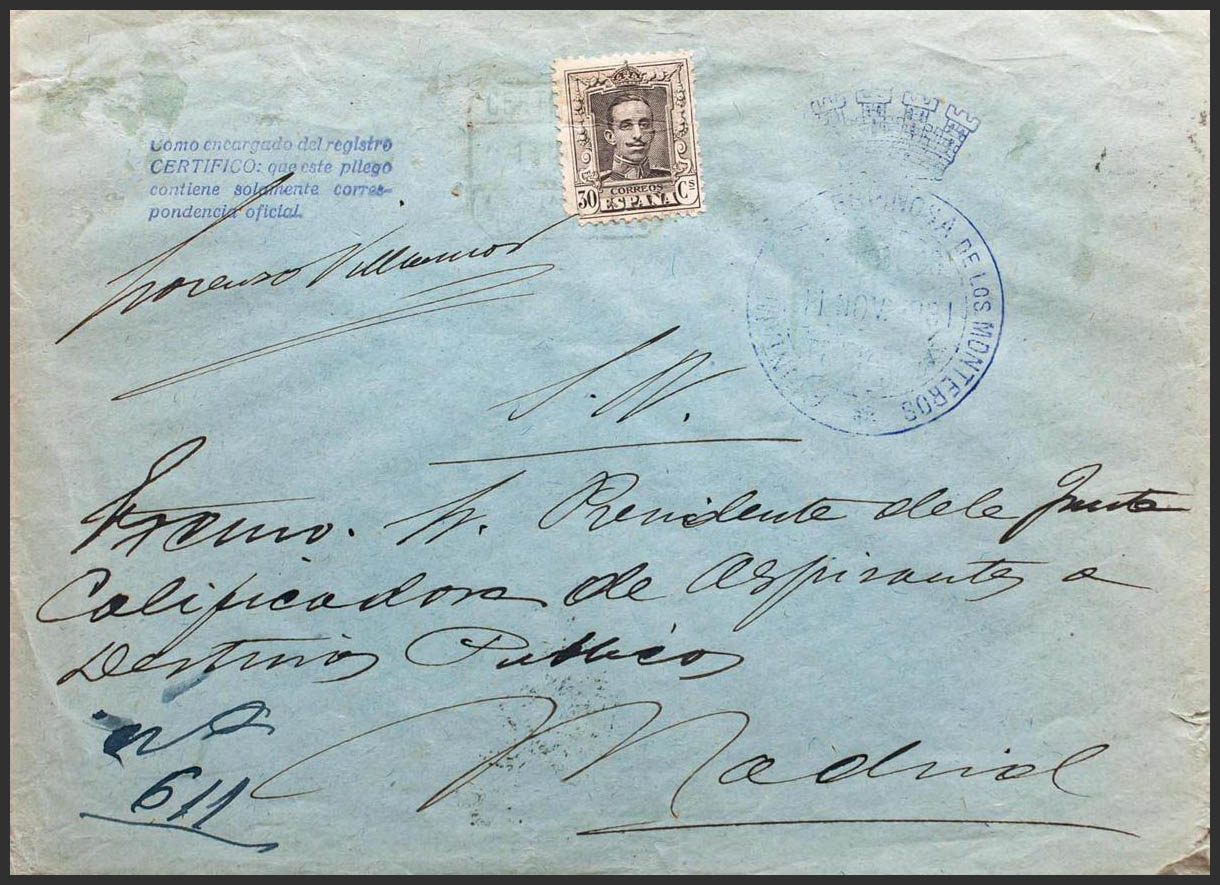 Como encargado del registro
CERTIFICO: que este pliego
contiene solamente corres-
pondencia oficial.
CORREOS
30 ESPAÑA Cs
ESPINOSA DE LOS MONTEROS
11 NOV
Lorenzo Villamor
S. N.
Excmo. Sr. Presidente de la Junta
Calificadora de Aspirantes a
Destinos Publicos
nº
611
Madrid